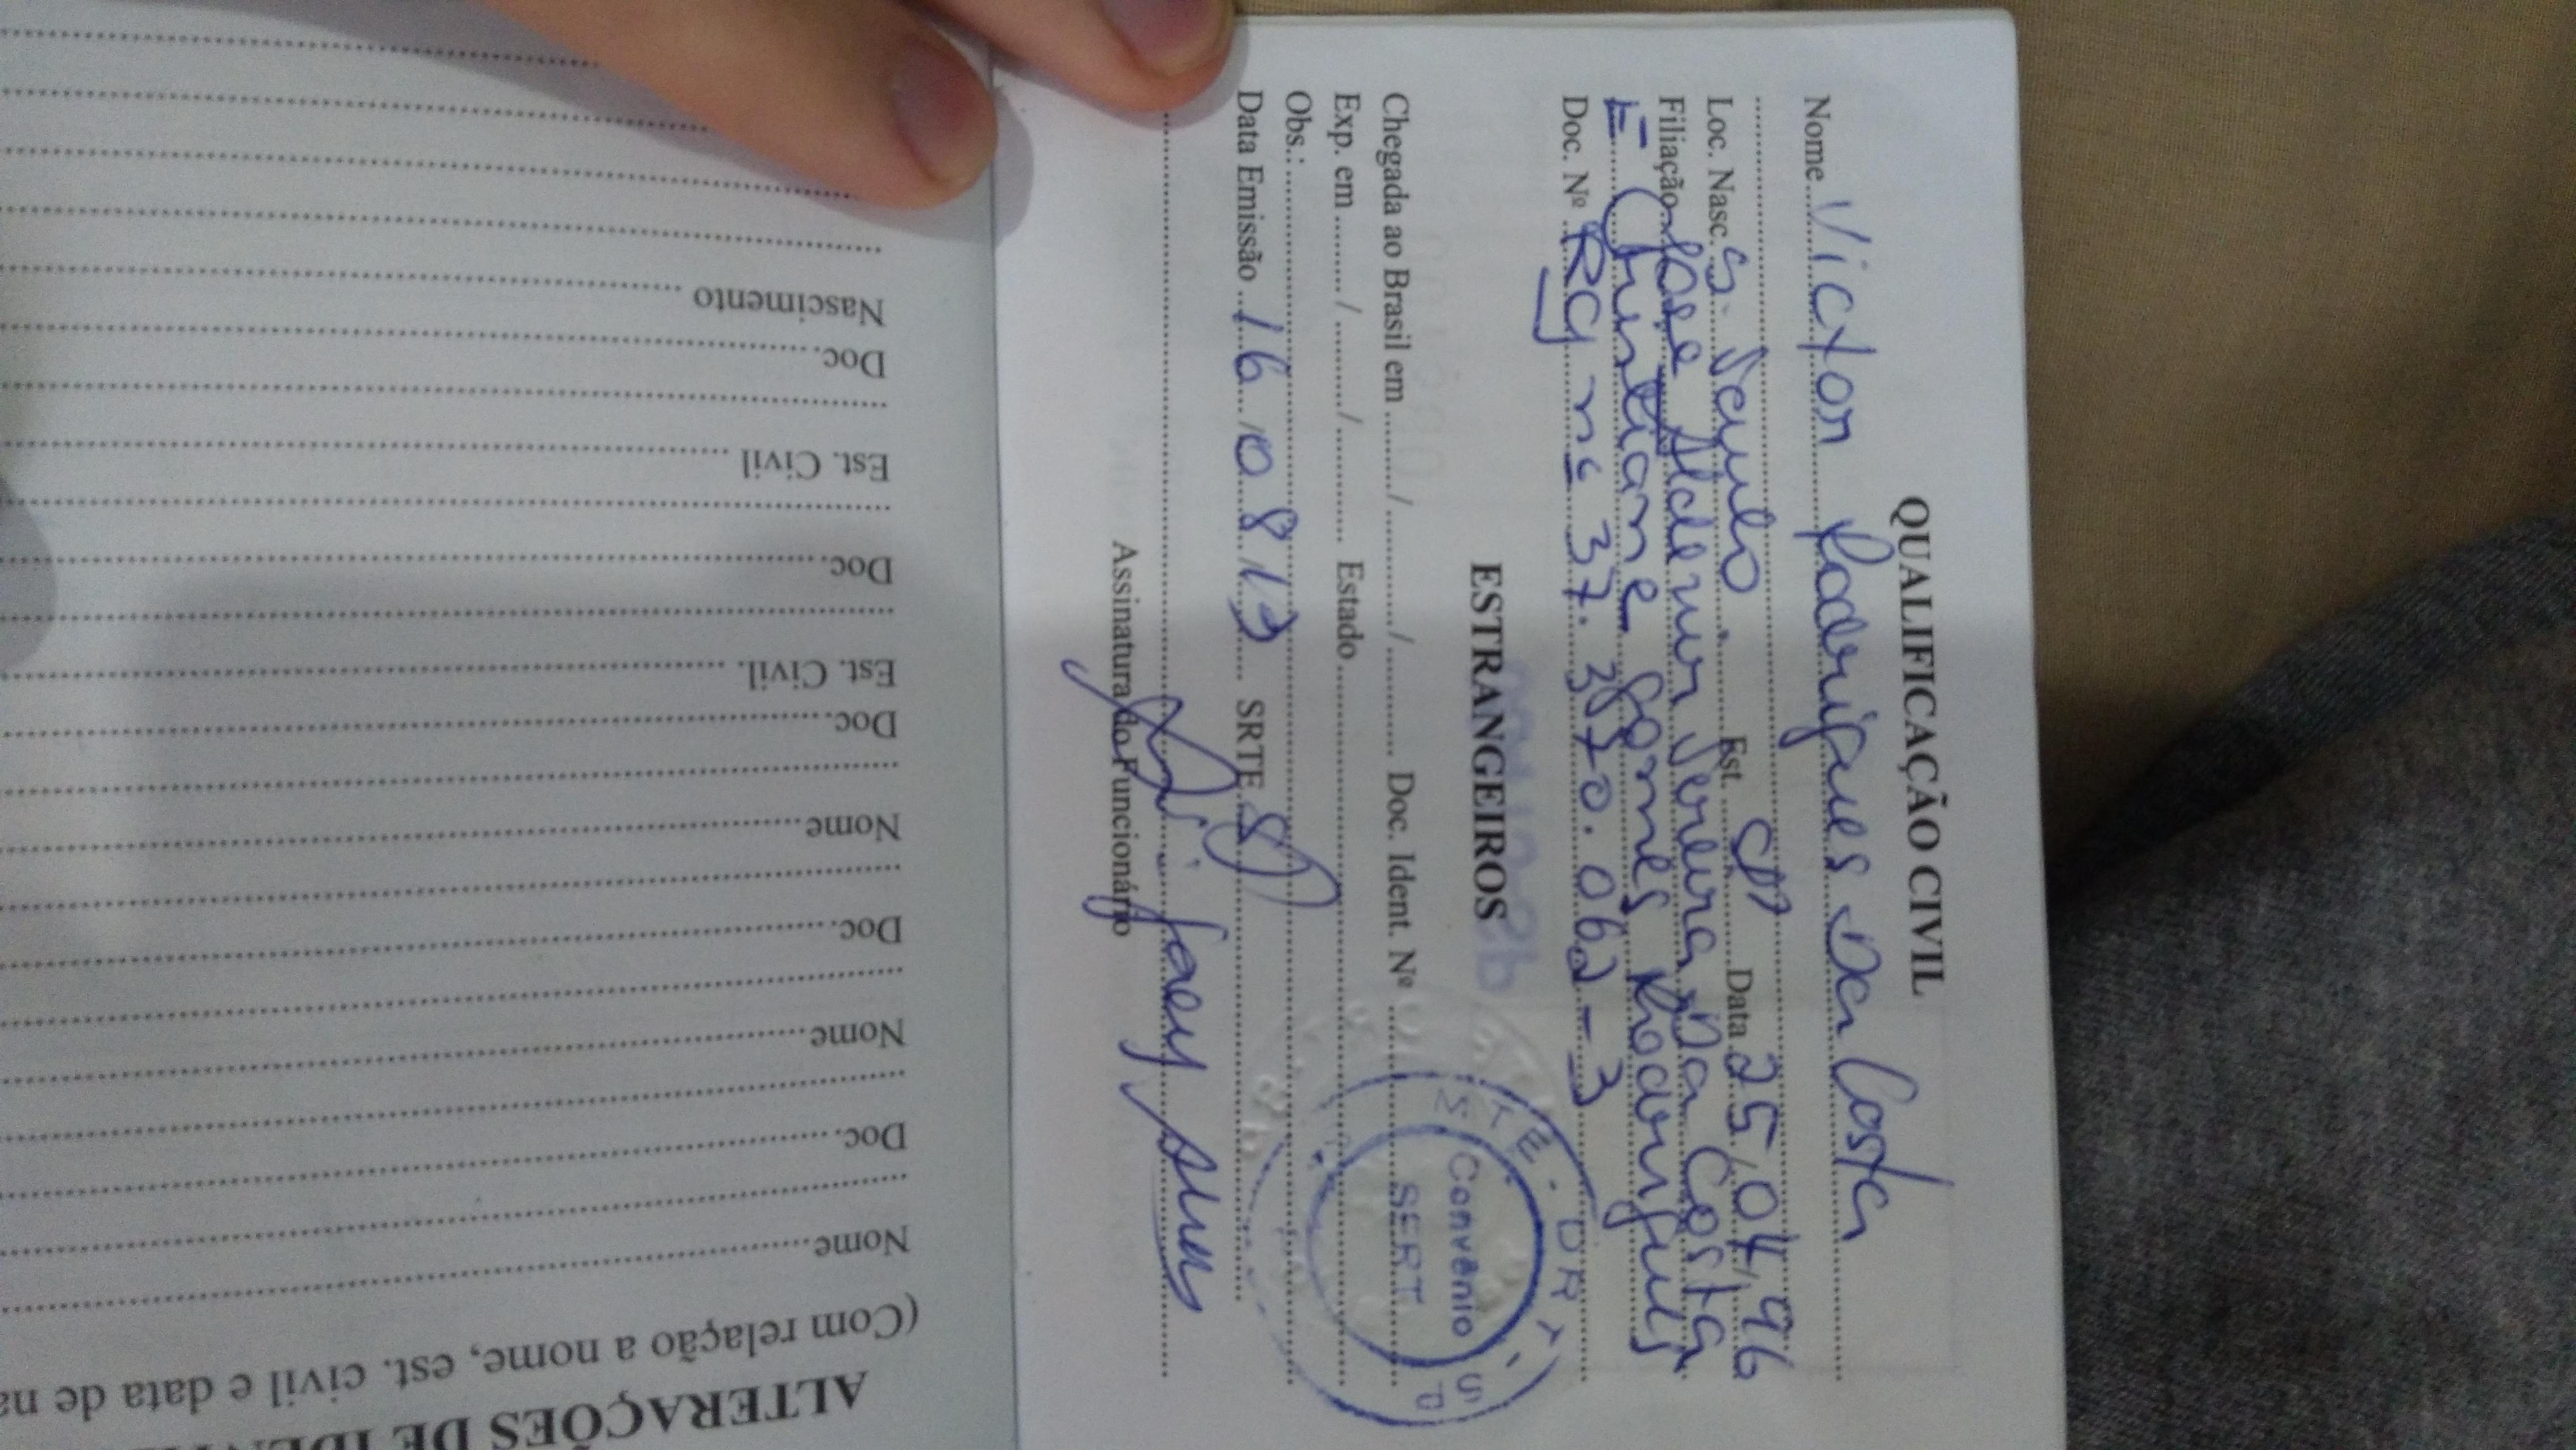 QUALIFICAÇÃO CIVIL
Nome Victor Rodrigues Da Costa
Loc. Nasc. S. Paulo Est. SP Data 25/04/96
Filiação Jose Aldemir Pereira Da Costa
E Christiane Gomes Rodrigues
Doc. Nº RG nº 37.370.062-3
ESTRANGEIROS
Chegada ao Brasil em ......../........../.......... Doc. Ident. Nº
Exp. em ......../........./.......... Estado
Obs.:
Data Emissão 16/08/13 SRTE SP
Assinatura do Funcionário
MTE - DRT - SP
Convênio
SERT
ALTERAÇÕES DE
(Com relação a nome, est. civil e data de na
Nome
Doc.
Nome
Doc.
Nome
Doc.
Est. Civil.
Doc.
Est. Civil
Doc.
Nascimento